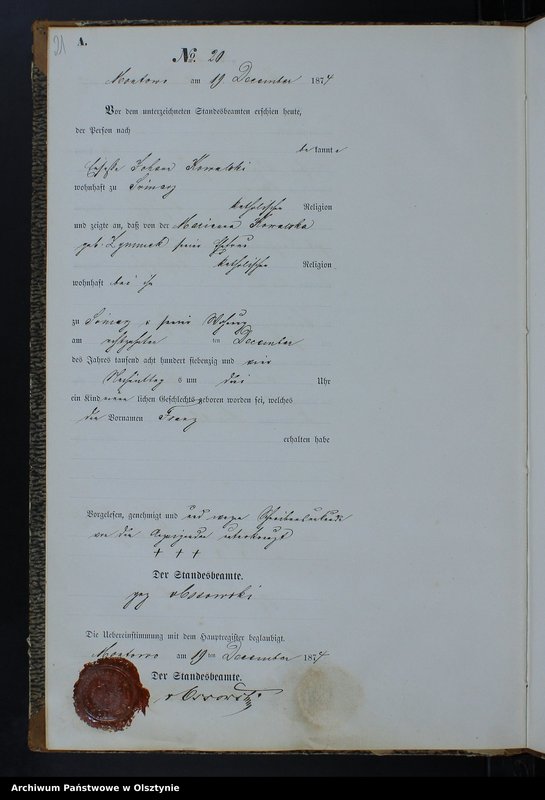 21
A.
No. 20
Montowo am 19 December 1874
Vor dem unterzeichneten Standesbeamten erschien heute,
der Person nach
bekannte
Johann Kowalski
wohnhaft zu
katholischer Religion
und zeigte an, daß von der Marianna Kowalska
geb. seine Ehefrau
katholischer Religion
wohnhaft bei ihm
zu in seiner Wohnung
am achtzehnten ten December
des Jahres tausend acht hundert siebenzig und vier
Nachmittags um drei Uhr
ein Kind männlichen Geschlechts geboren worden sei, welches
die Vornamen Franz
erhalten habe
Vorgelesen, genehmigt und und wegen
von dem unterkreuzt
+ + +
Der Standesbeamte.
gez. v Ossowski
Die Uebereinstimmung mit dem Hauptregister beglaubigt.
Montowo am 19 ten December 1874
Der Standesbeamte.
v Ossowski
Archiwum Państwowe w Olsztynie